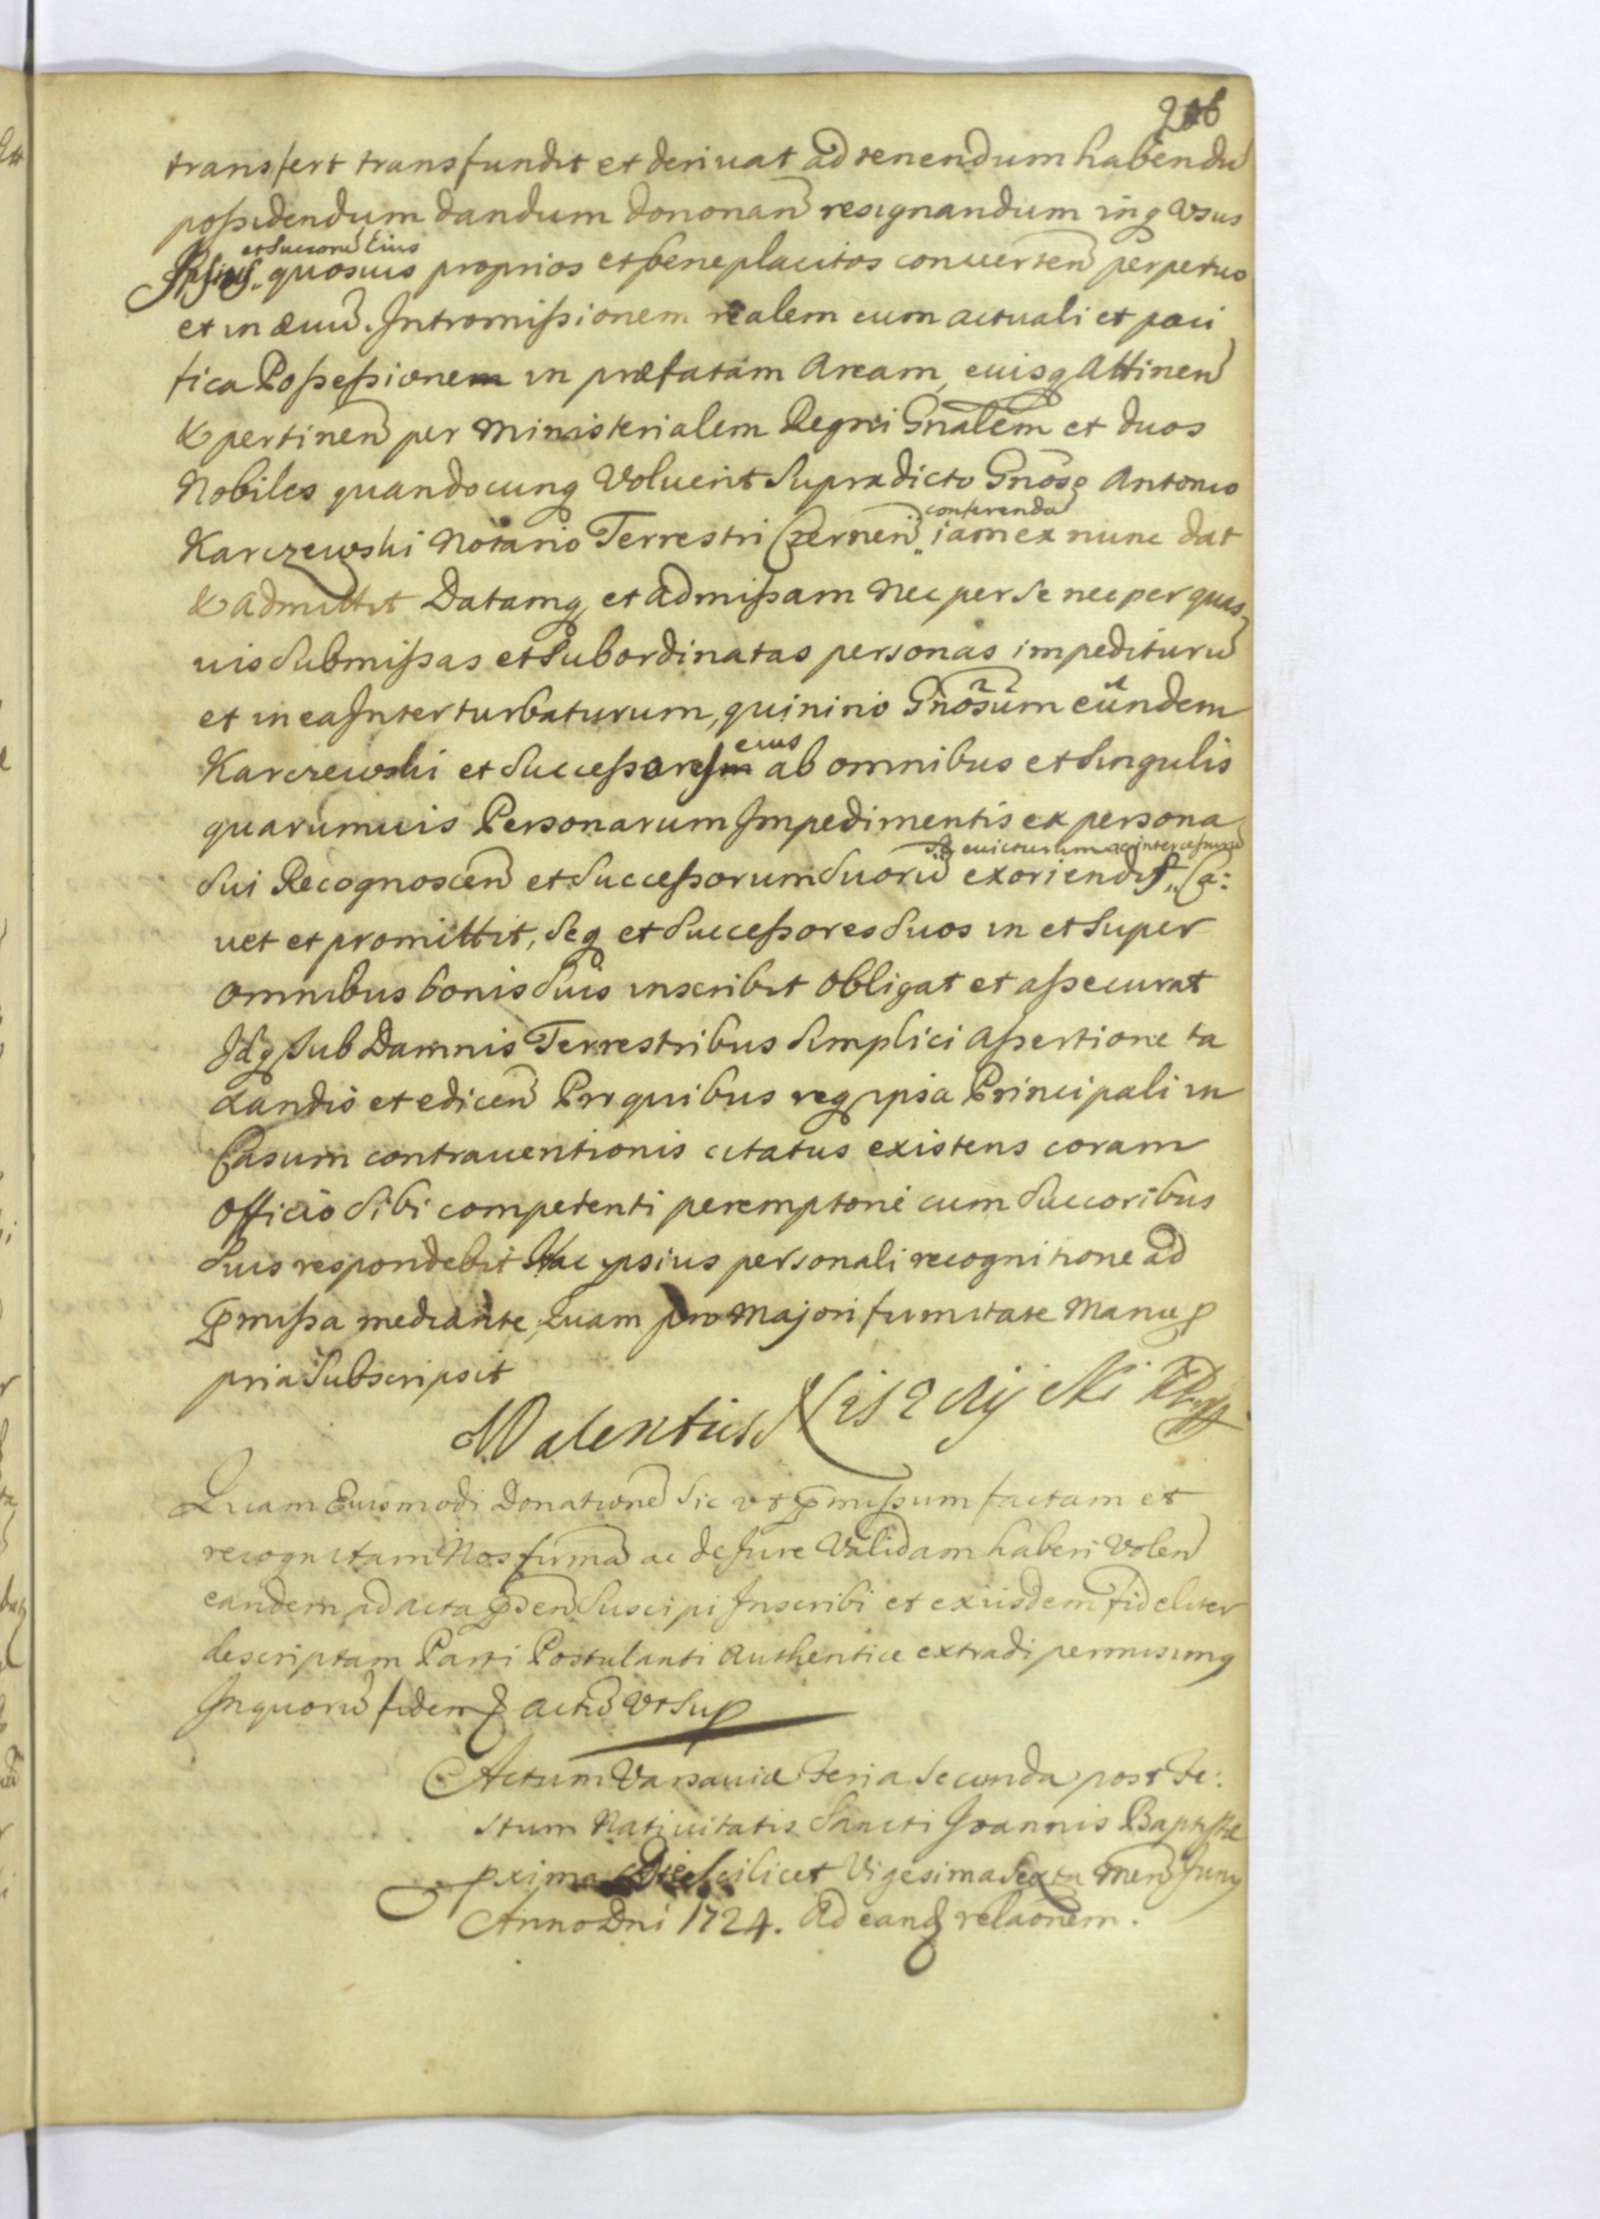 206
transfert transfundit et deriuat ad tenendum habendū
poßidendum dandum dononan̄ resignandum inq Vsus
et Succorū Eius
Ipsius quosuis proprios et beneplacitos conuerten̄ perpetuo
et in æuū. Intromißionem realem cum actuali et paci
fica Poßeßionem in præfatam Aream, euisq Attinen̄
& pertinen̄ per Ministerialem Regni Gnālem et duos
Nobiles quandocunq Voluerit Supradicto Gnōso Antonio
conferenda
Karczewski Notario Terrestri Czernen̄ iam ex nunc dat
& admittit Datamq et admißam Nec per Se nec per quas
uis Submißas et Subordinatas personas impediturū
et in ea Interturbaturum, quinino Gnōsum eūndem
eius
Karczewski et Succeßores ab omnibus et Singulis
quarumuis Personarum Impedimentis ex persona
Se euicturum ac interceßurū
Sui Recognoscen̄ et Succeßorum Suorū exoriendis Ca:
uet et promittit, Seq et Succeßores Suos in et Super
omnibus bonis Suis inscribit obligat et aßecurat
Idq Sub Damnis Terrestribus Simplici aßertione ta
xandis et edicen̄ Pro quibus req ipsa Principali in
Casum contrauentionis citatus existens coram
Officio Sibi competenti peremptorie cum Succoribus
Suis respondebit Hac ipsius personali recognitione ad
p̄mißa mediante, Quam pro Majori firmitate Manu p
pria Subscripsit
Walentius
Quam Euismodi Donationē Sic vt p̄mißum factam et
recognitam Nos firmā ac de Jure Validam haberi Volen̄
eandem ad acta p̄den̄ Suscipi Inscribi et ex iisdem fideliter
descriptam Parti Postulanti Authentice extradi permisimq
In quorū fidem & Actū Vt Sup
Actum Varsauiæ Feria Secunda post Fe:
stum Natiuitatis Sancti Joannis Baptistæ
pxima Die Scilicet Vigesima Sexta Mens̄ Junÿ
Anno Dni 1724. Ad eand relaōnem.